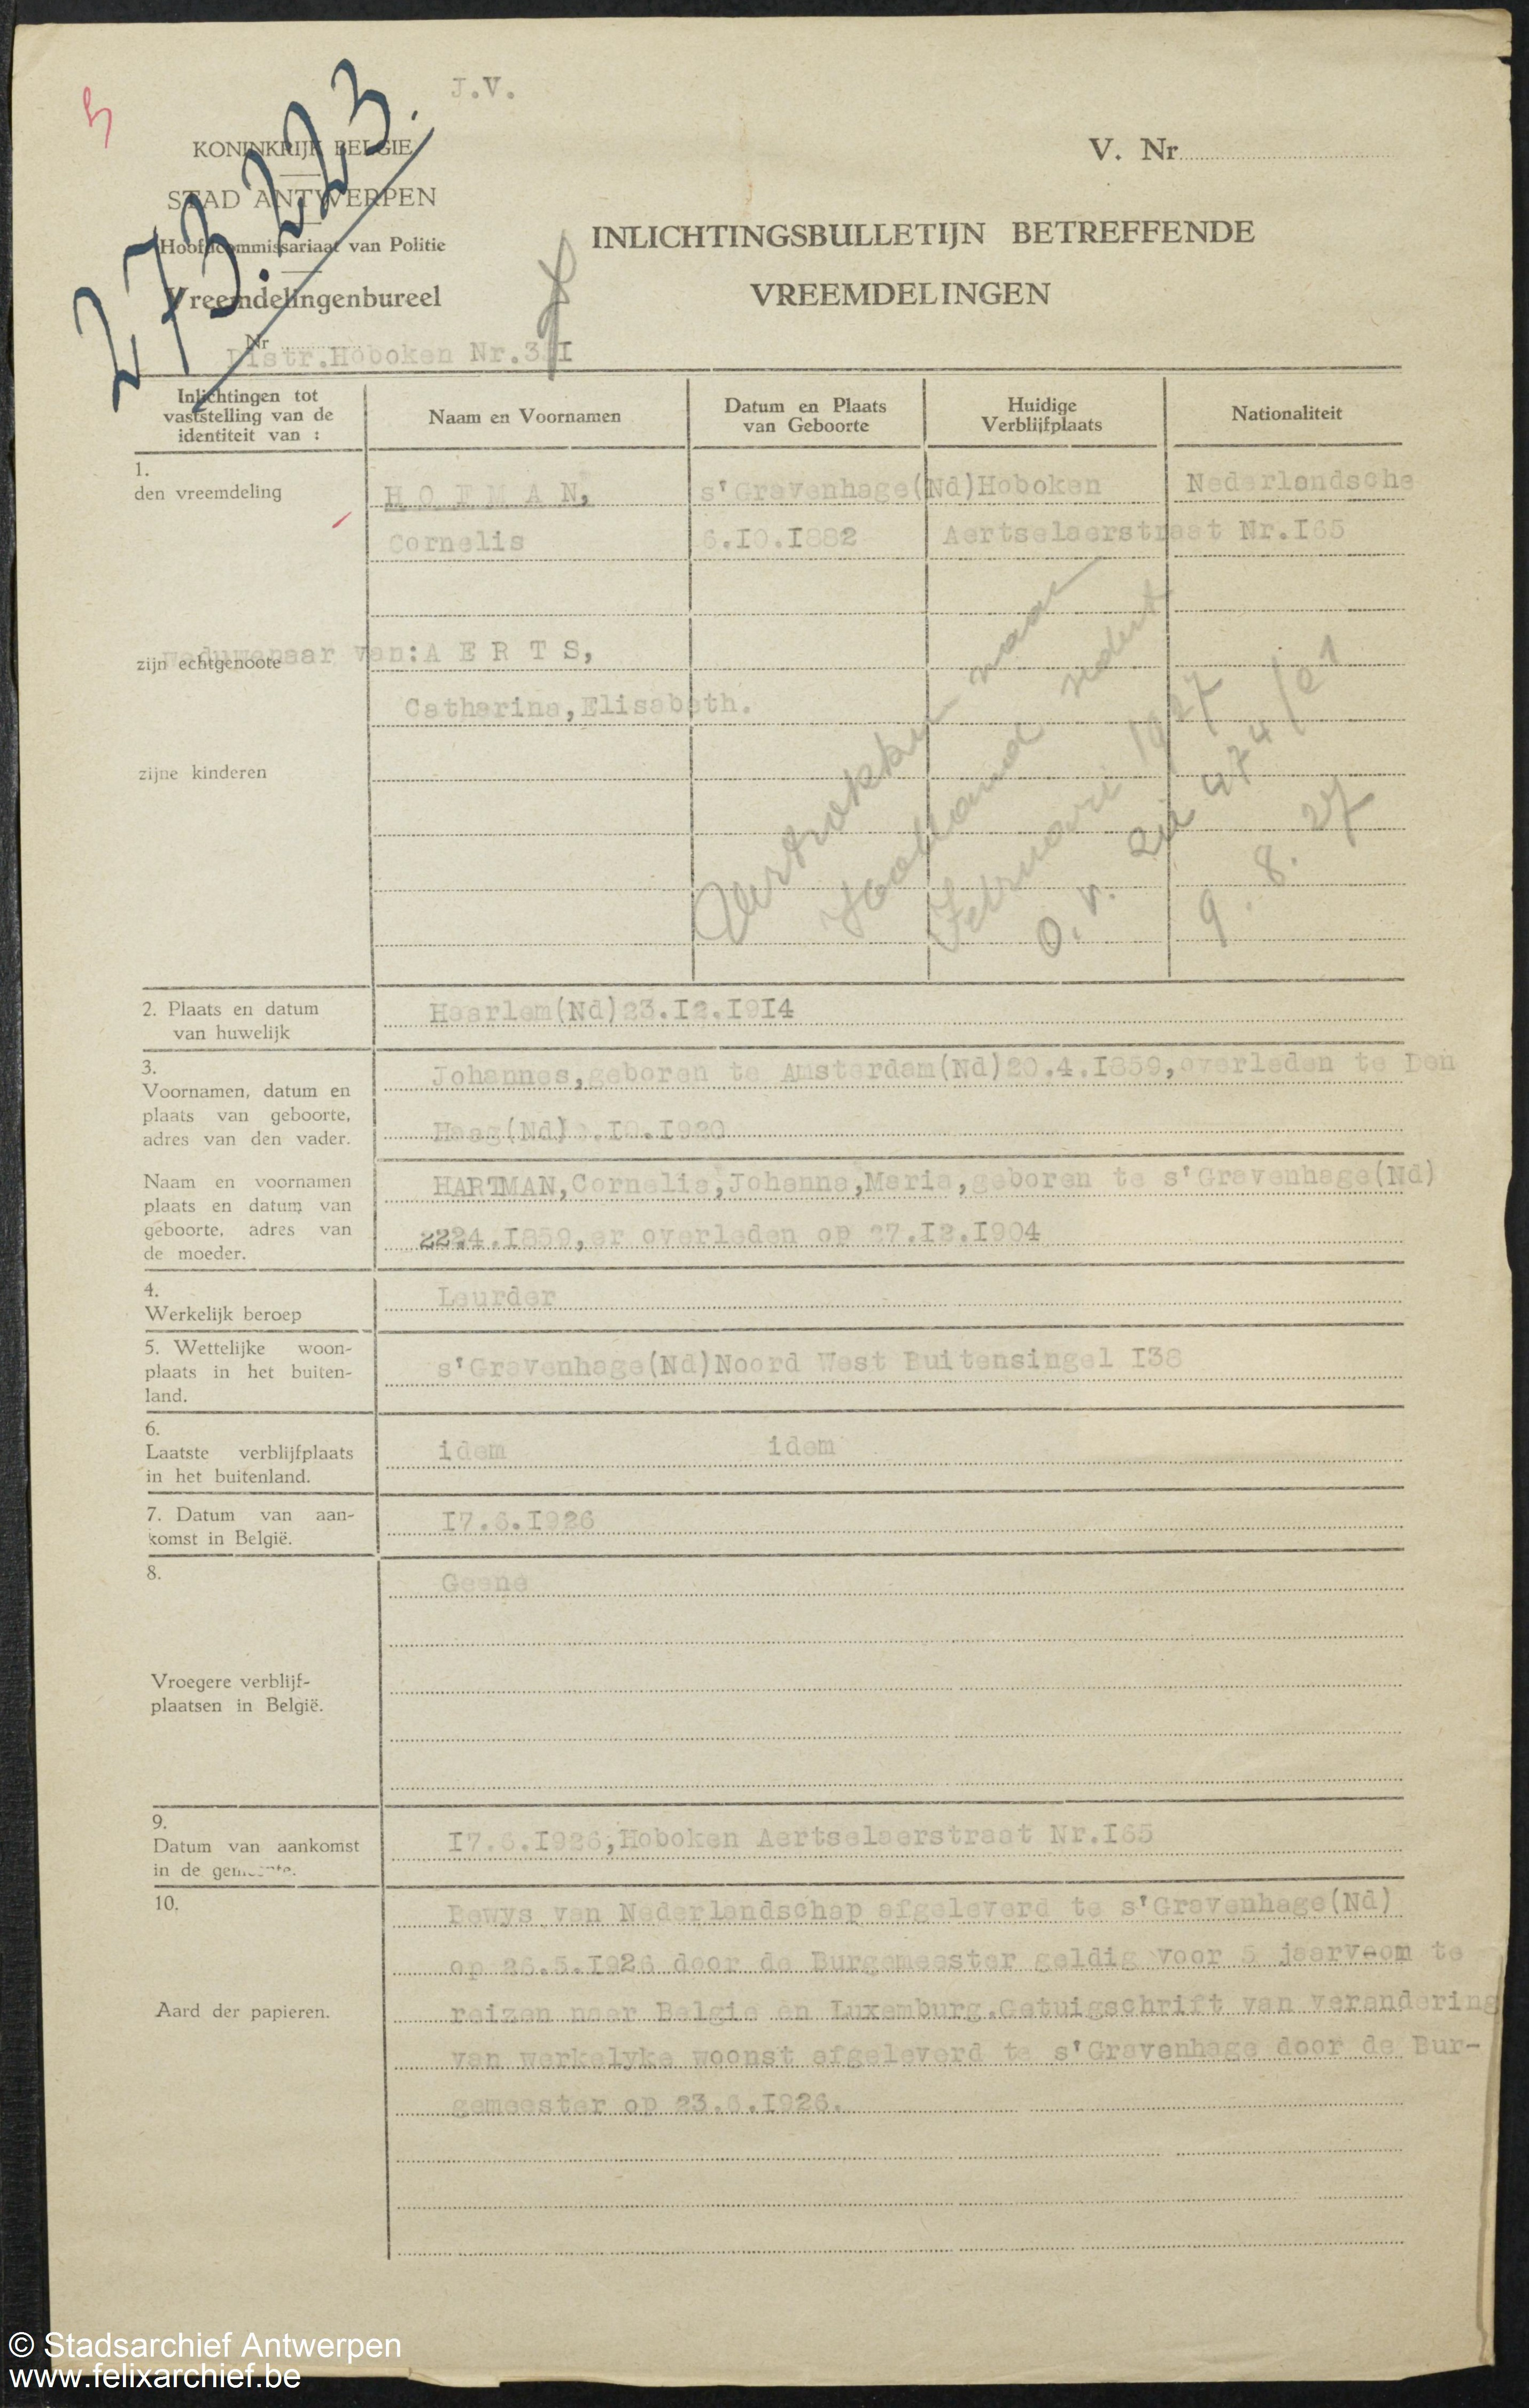 J.V.
5
273.223.
KONINKRIJK BELGIE
STAD ANTWERPEN
Hoofdcommissariaat van Politie
Vreemdelingenbureel
Nr
Distr.Hoboken Nr.
V. Nr
INLICHTINGSBULLETIJN BETREFFENDE
VREEMDELINGEN
Inlichtingen tot vaststelling van de identiteit van :
Naam en Voornamen
Datum en Plaats van Geboorte
Huidige Verblijfplaats
Nationaliteit
1.
den vreemdeling
HOEMAN, s'Gravenhage(Nd)Hoboken Nederlandsche
Cornelis 6.I0.I882 Aertselaerstraat Nr.I65
zijn echtgenoote
weduwenaar van:A E R T S,
Catharina,Elisabeth.
zijne kinderen
Vertrokken naar
Holland sedert
Februari 1927
o.v. 474/21
9.8.27
2. Plaats en datum
van huwelijk
Haarlem(Nd)23.I2.I9I4
3.
Voornamen, datum en
plaats van geboorte,
adres van den vader.
Johannes,geboren te Amsterdam(Nd)20.4.I859,overleden te Den
Haag(Nd) .I0.I920
Naam en voornamen
plaats en datum van
geboorte, adres van
de moeder.
HARTMAN,Cornelia,Johanna,Maria,geboren te s'Gravenhage(Nd)
.4.I859,er overleden op 27.I2.I904
4.
Werkelijk beroep
Leurder
5. Wettelijke woon-
plaats in het buiten-
land.
s'Gravenhage(Nd)Noord West Buitensingel I38
6.
Laatste verblijfplaats
in het buitenland.
idem idem
7. Datum van aan-
komst in België.
I7.6.I926
8.
Geene
Vroegere verblijf-
plaatsen in België.
9.
Datum van aankomst
in de gemeente.
I7.6.I926,Hoboken Aertselaerstraat Nr.I65
10.
Aard der papieren.
Bewys van Nederlandschap afgeleverd te s'Gravenhage(Nd)
op 26.5.I926 door de Burgemeester geldig voor 5 jaar om te
reizen naar Belgie en Luxemburg.Getuigschrift van verandering
van werkelyke woonst afgeleverd te s'Gravenhage door de Bur-
gemeester op 23.6.I926.
© Stadsarchief Antwerpen
www.felixarchief.be